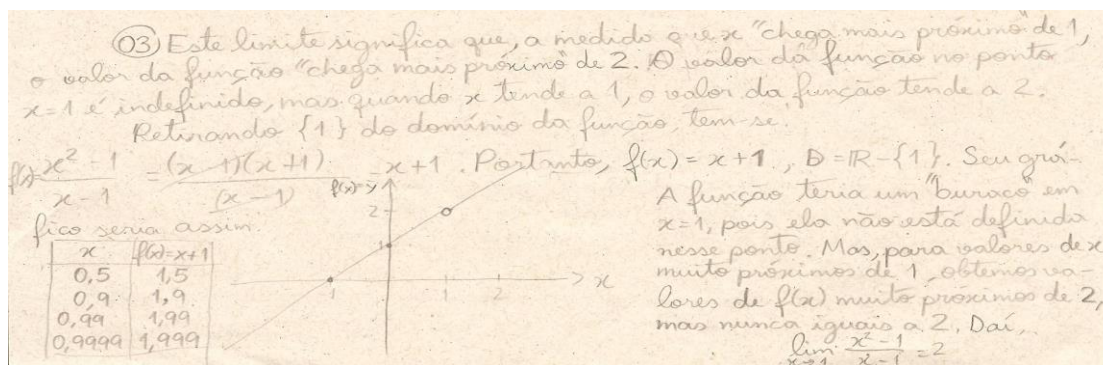 03) Este limite significa que, a medida que x "chega mais próximo" de 1,
o valor da função "chega mais próximo" de 2. O valor da função no ponto
x=1 é indefinido, mas quando x tende a 1, o valor da função tende a 2.
Retirando {1} do domínio da função, tem-se:
f(x)= x² - 1 / x - 1 = (x-1)(x+1) / (x-1) = x+1. Portanto, f(x) = x+1, D = IR - {1}. Seu grá-
fico seria assim.
x f(x)=x+1
0,5 1,5
0,9 1,9
0,99 1,99
0,9999 1,999
f(x)=y
2
1
-1 1 2 x
A função teria um "buraco" em
x=1, pois ela não está definida
nesse ponto. Mas, para valores de x
muito próximos de 1, obtemos va-
lores de f(x) muito próximos de 2,
mas nunca iguais a 2. Daí,
lim x→1 x² - 1 / x - 1 = 2